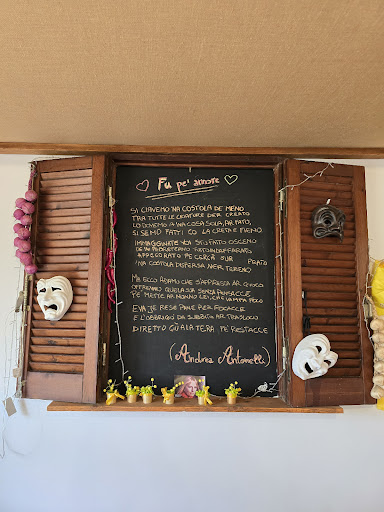 Fu pe' amore
SI CIAVEMO 'NA COSTOLA DE MENO
TRA TUTTE LE CREATURE DER CREATO
LO DOVEMO A 'NA COSA SOLA, AR FATO,
SI SEMO FATTI CO LA CRETA E FIENO
IMMAGGINATE VOI STU FATO OSCENO
DE 'N
APPECORATO PE CERCÀ SUR PRATO
'NA COSTOLA DISPERSA NER TERRENO
MA ECCO ADAMO CHE S'APPRESTA AR GIOCO
OFFRENNO QUELLA SUA SENZA
PE METTE AR MONNO LEI, CHE
EVA JE RESE PANE PER FOCACCE
E L'OBBRIGÒ DA SUBBITO AR TRASLOCO
DIRETTO GIÙ A LA TERA PE
(Andrea Antonelli)